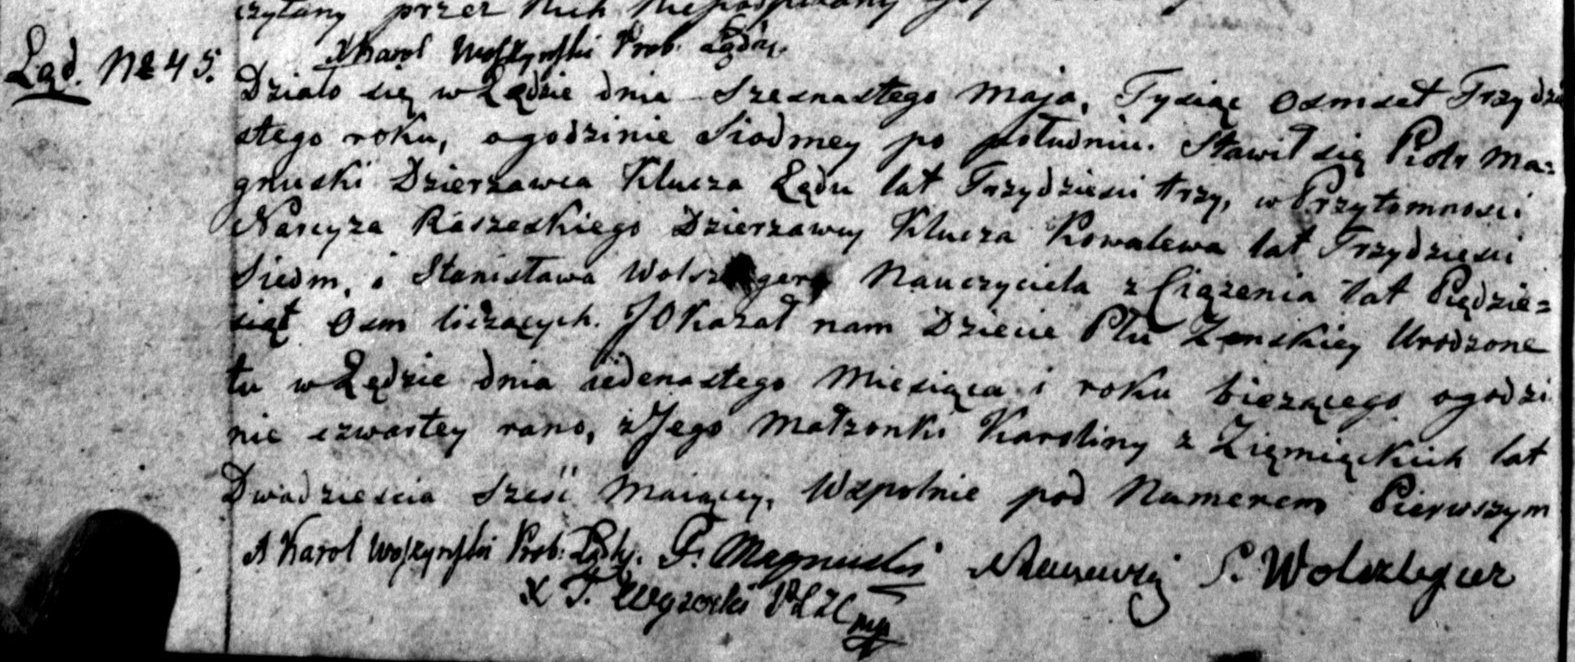 czytany przez Nich Niepodpisany
X Karol Woszynski Prob. Lądzi.
Ląd. N2 45.
Działo się w Lędzie dnia Szesnastego Maja, Tysiąc Osmset Trzydzie
stego roku, ogodzinie Siodmey po południu. Stawił się Piotr Ma=
gnuski Dzierzawca Klucza Lędu lat Trzydzieści trzy, w Przytomności
Narcyza Raszeskiego Dzierzawcy Klucza Kowalewa lat Trzydzieści
Siedm, i Stanisława Nauczyciela z Ciążenia lat Piędzie=
siąt Osm liczących. J Okazał nam Dziecie Płci Zenskiey Urodzone
tu w Lędzie dnia iedenastego Miesiąca i roku biezącego ogodzi
nie czwartey rano, z Jego Małzonki Karoliny z Ziemięckich lat
Dwadzieścia Sześć Maiącey, Wspolnie pod Numerem Pierwszym
X Karol Woszynski Prob. P. Magnuski S. Wolszlegier
X